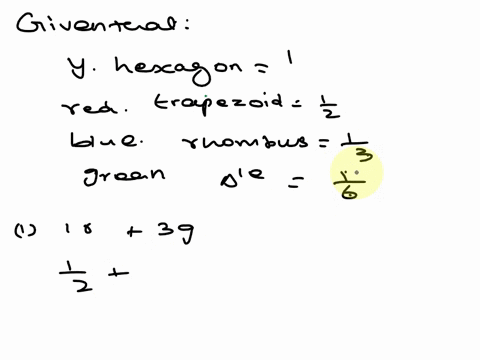 Giventhat:
y. hexagon = 1
red. trapezoid = 1/2
blue. rhombus = 1/3
green Δle = 1/6
(1) 1r + 3g
1/2 +